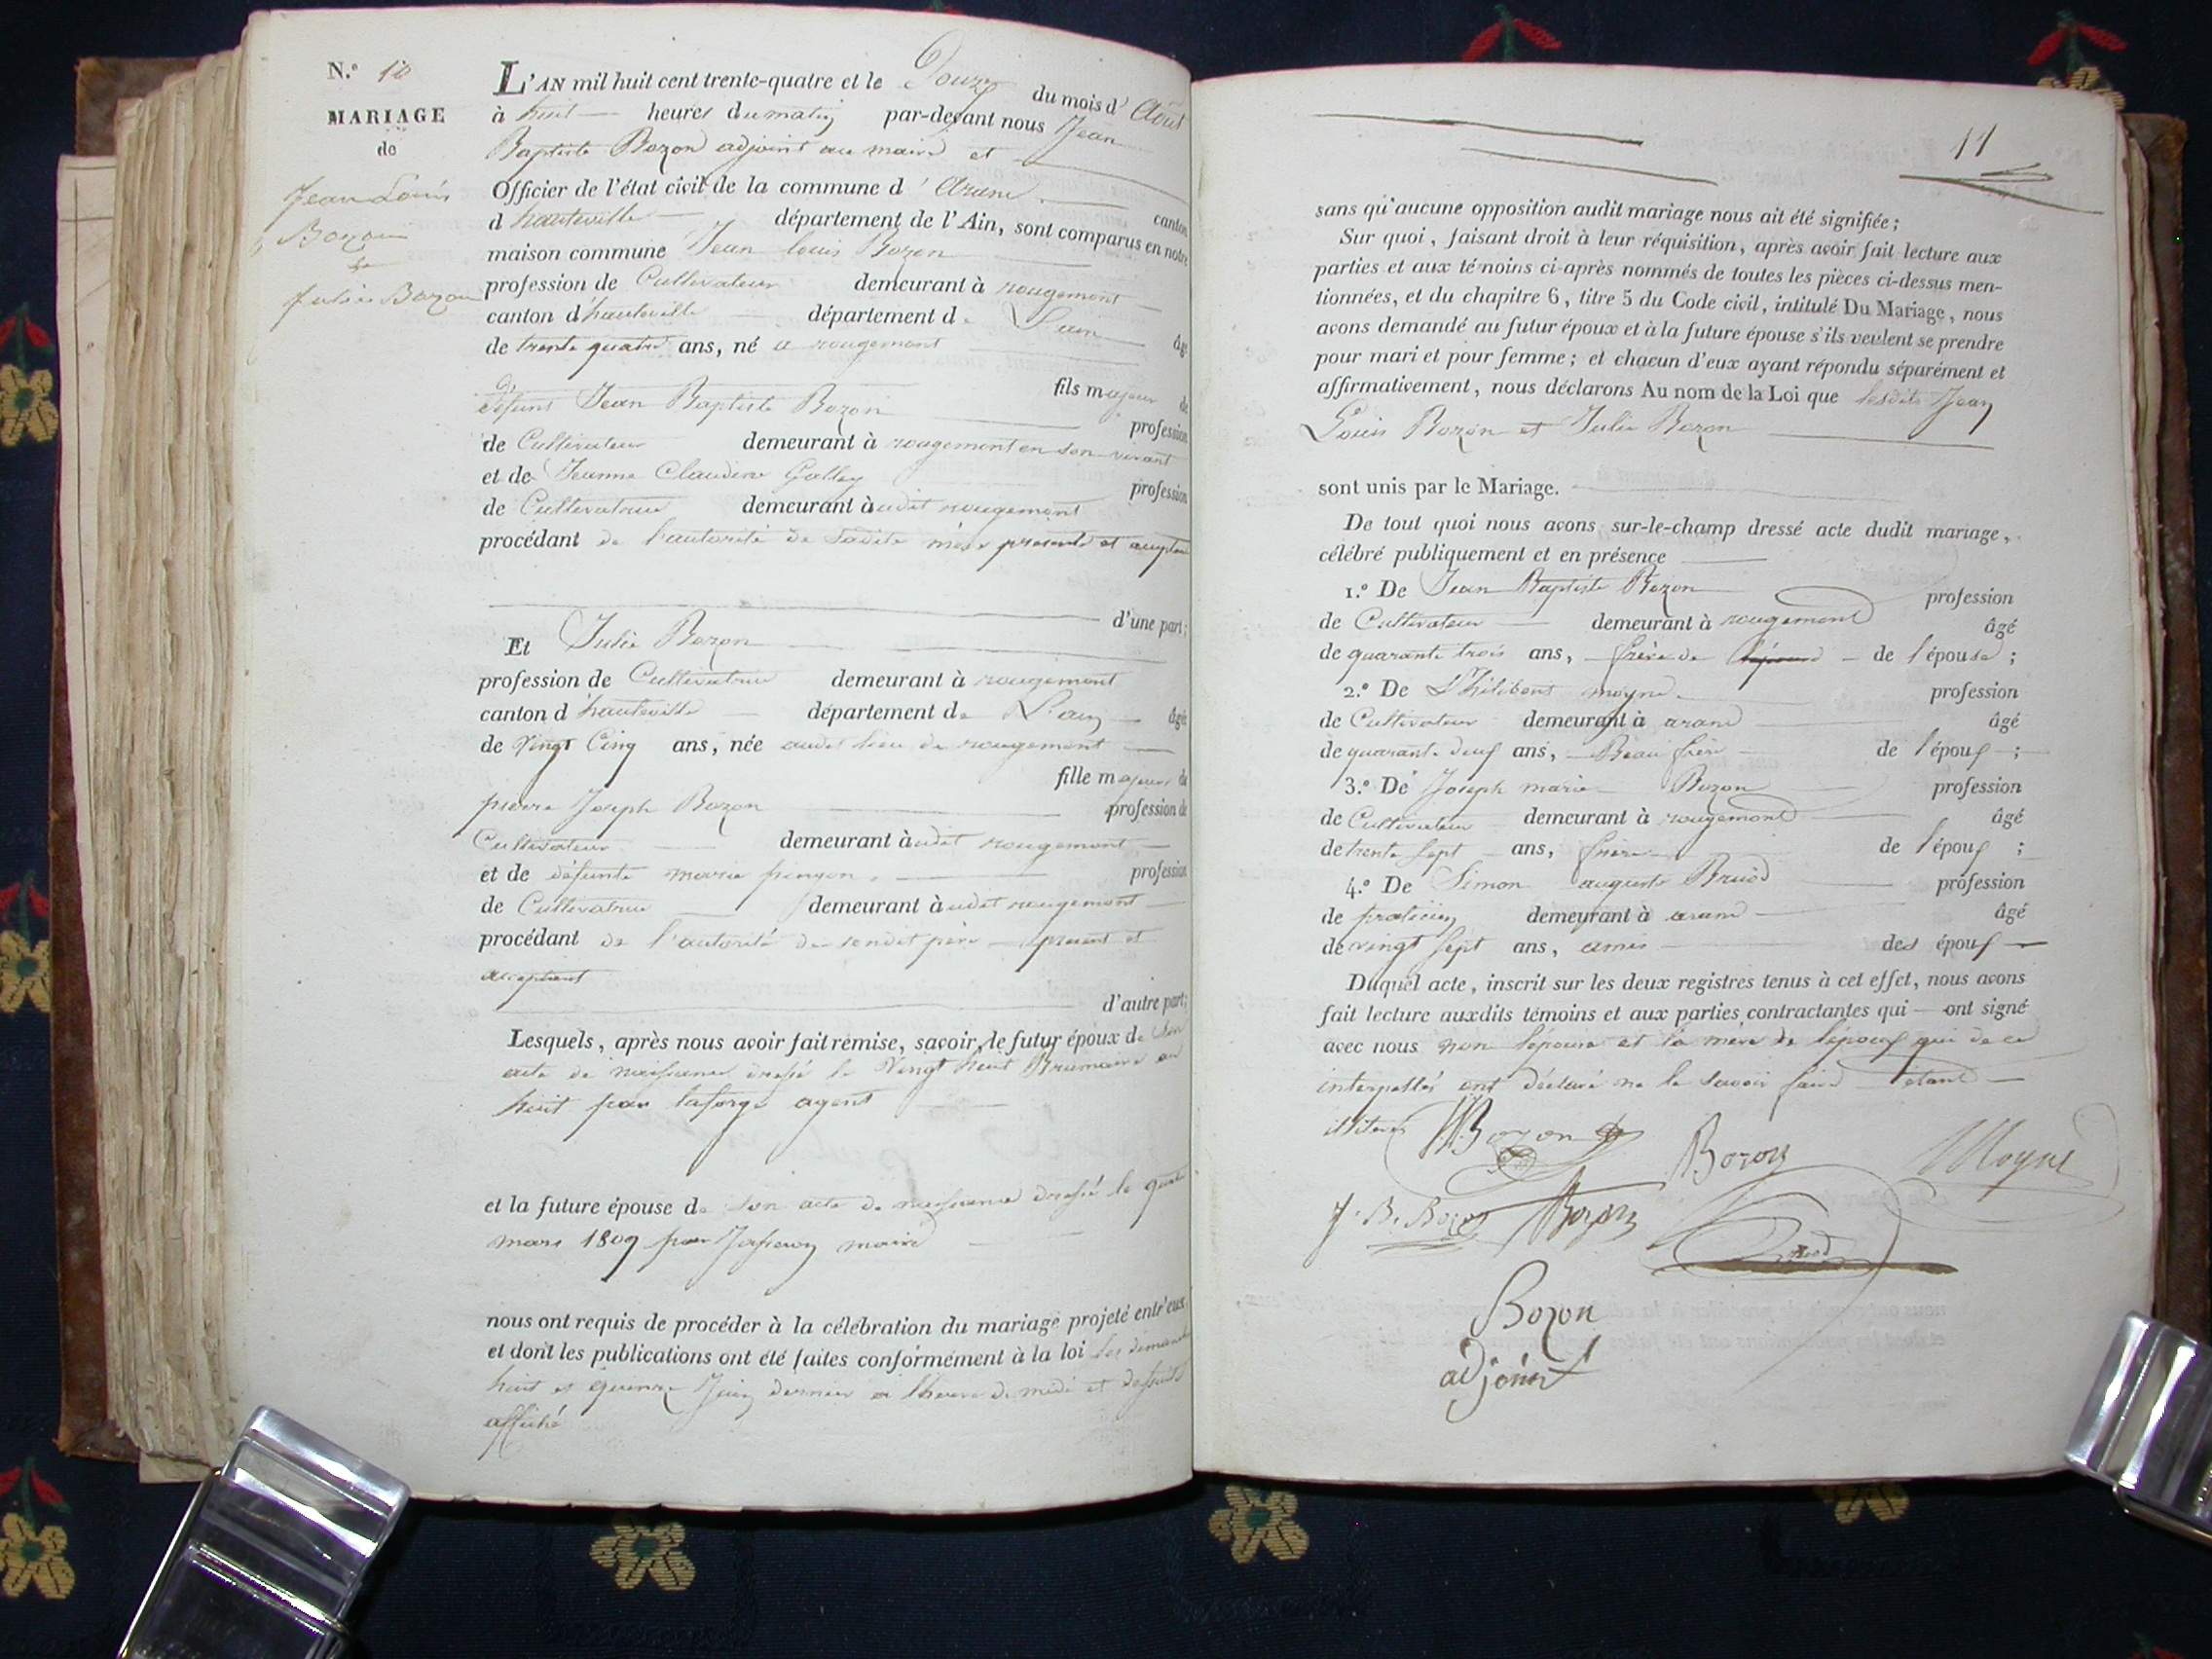 N.º 10
MARIAGE
de
Jean Louis
Bozon
&
Julie Bozon
L'AN mil huit cent trente-quatre et le Douze du mois d' Août
à huit heures du matin par-devant nous Jean
Baptiste Bozon adjoint au maire et
Officier de l'état civil de la commune d' Aranc canton
d'hauteville département de l'Ain, sont comparus en notre
maison commune Jean Louis Bozon
profession de Cultivateur demeurant à rougemont
canton d'hauteville département de L'ain âgé
de trente quatre ans, né a rougemont
fils majeur de
défunt Jean Baptiste Bozon profession
de Cultivateur demeurant à rougemont en son vivant
et de Jeanne Claudine Golley profession
de Cultivatrice demeurant audit rougemont
procédant de l'autorité de sadite mère présente et
d'une part;
Et Julie Bozon
profession de Cultivatrice demeurant à rougemont
canton d'hauteville département de L'ain âgée
de Vingt Cinq ans, née audit lieu de rougemont
fille majeure de
pierre Joseph Bozon profession de
Cultivateur demeurant audit rougemont
et de défunte marie pingon profession
de Cultivatrice demeurant audit rougemont
procédant de l'autorité de sondit père présent et
acceptant
d'autre part;
Lesquels, après nous avoir fait remise, savoir, le futur époux de son
acte de naissance dressé le Vingt huit Brumaire an
huit par laforge agent
et la future épouse de son acte de naissance dressé le quatre
mars 1809 par maire
nous ont requis de procéder à la célébration du mariage projeté entr'eux
et dont les publications ont été faites conformément à la loi les dimanches
huit et quinze Juin dernier a l'heure de midi et de suite
affiché
11
sans qu'aucune opposition audit mariage nous ait été signifiée;
Sur quoi, faisant droit à leur réquisition, après avoir fait lecture aux
parties et aux témoins ci-après nommés de toutes les pièces ci-dessus men-
tionnées, et du chapitre 6, titre 5 du Code civil, intitulé Du Mariage, nous
avons demandé au futur époux et à la future épouse s'ils veulent se prendre
pour mari et pour femme; et chacun d'eux ayant répondu séparément et
affirmativement, nous déclarons Au nom de la Loi que lesdits Jean
Louis Bozon et Julie Bozon
sont unis par le Mariage.
De tout quoi nous avons sur-le-champ dressé acte dudit mariage,
célébré publiquement et en présence
1.º De Jean Baptiste Bozon profession
de Cultivateur demeurant à rougemont âgé
de quarante trois ans, frère de de l'épouse;
2.º De Philibert moyne profession
de Cultivateur demeurant à aranc âgé
de quarante deux ans, Beau frère de l'époux;
3.º De Joseph marie Bozon profession
de Cultivateur demeurant à rougemont âgé
de trente sept ans, frère de l'époux;
4.º De Simon auguste Bruod profession
de praticien demeurant à aranc âgé
de vingt sept ans, amis des époux
Duquel acte, inscrit sur les deux registres tenus à cet effet, nous avons
fait lecture auxdits témoins et aux parties contractantes qui ont signé
avec nous non l'épouse et la mère de l'époux qui de ce
interpellés ont déclaré ne le savoir faire étant
illiterés
Bozon
Bozon
Moyne
J. B. Bozon
Bozon
Bozon
adjoint